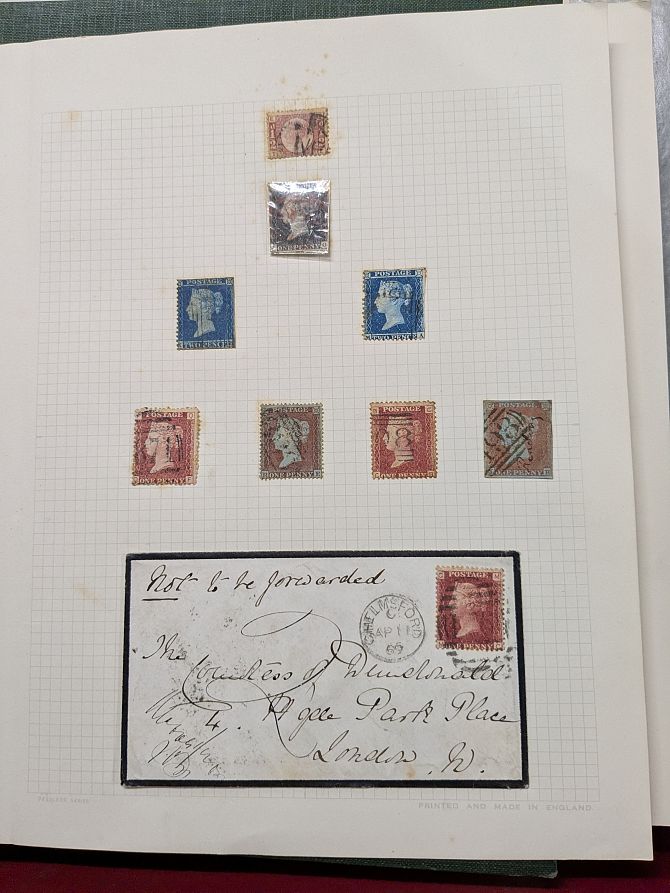 ONE PENNY
POSTAGE
TWO PENCE
POSTAGE
TWO PENCE
POSTAGE
ONE PENNY
POSTAGE
ONE PENNY
POSTAGE
ONE PENNY
POSTAGE
ONE PENNY
Not to be forwarded
POSTAGE
ONE PENNY
CHELMSFORD
C
AP 11
66
The
Countess of Dundonald
4. Hyde Park Place
London. W.
PEERLESS SERIES
PRINTED AND MADE IN ENGLAND